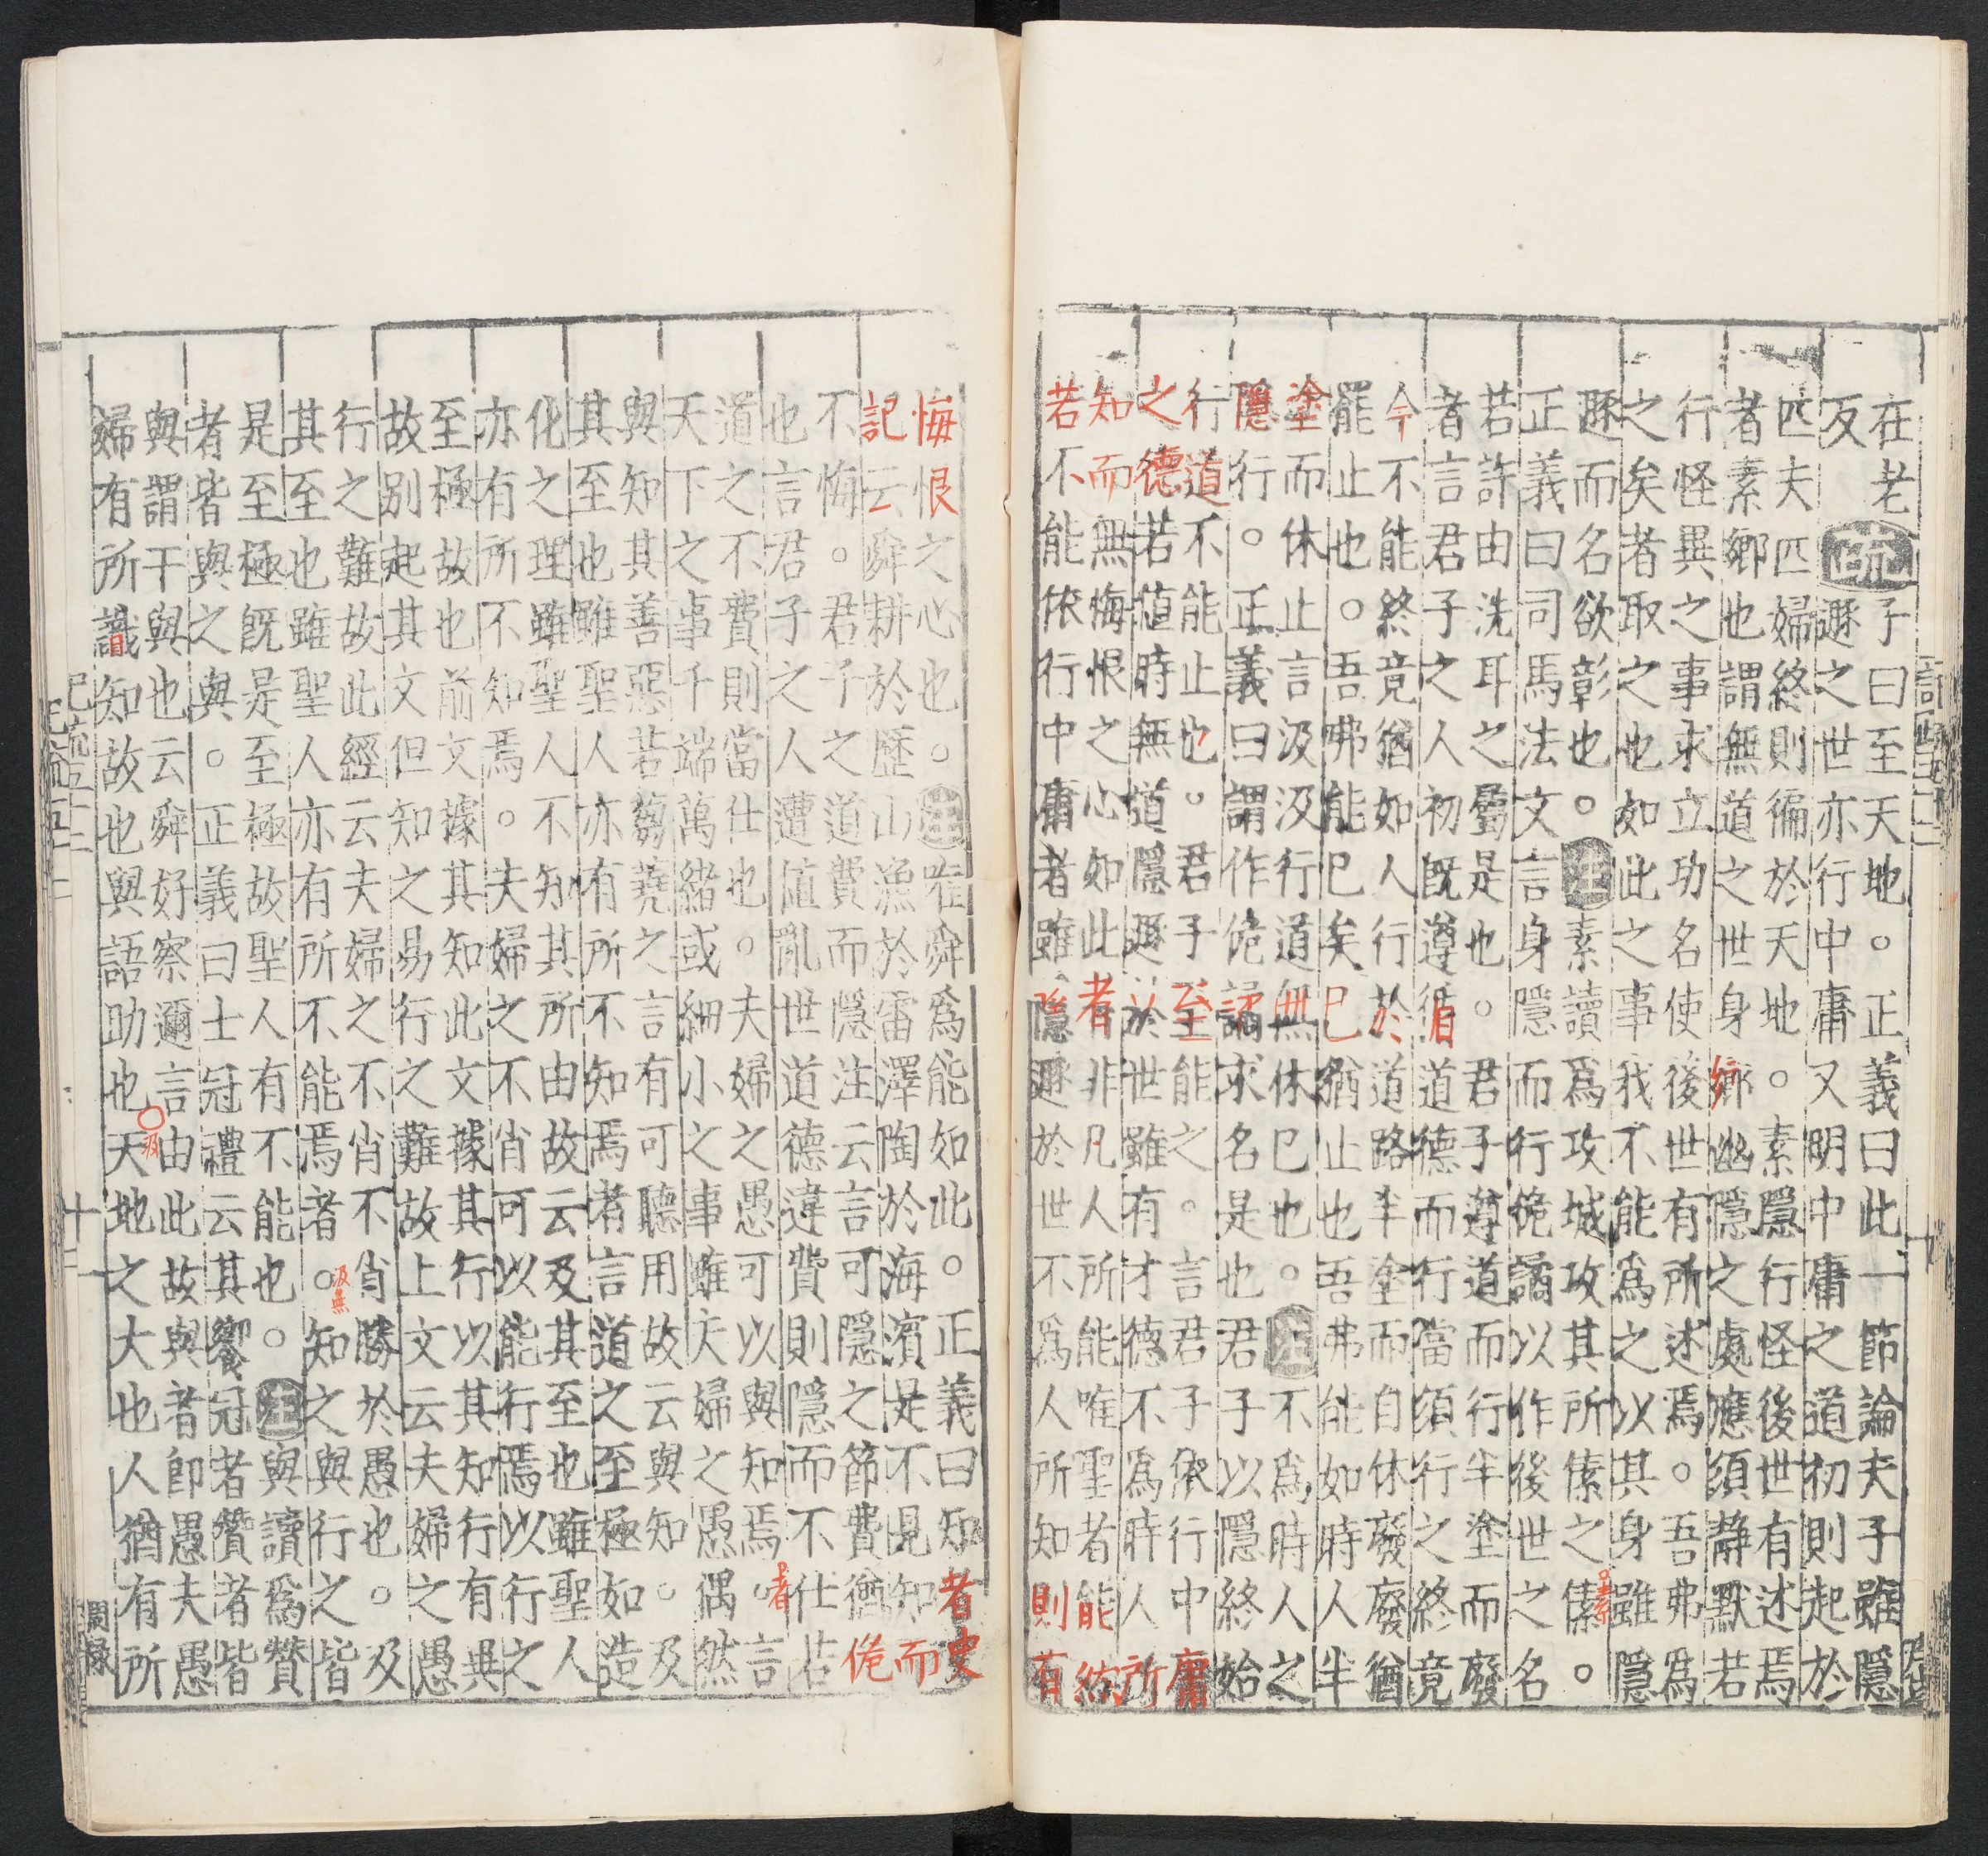 在老
反
疏
子曰至天地。正義曰此一節論夫子雖隱
遯之世亦行中庸又明中庸之道初則起於
匹夫匹婦終則徧於天地。素隱行怪後世有述焉
者素鄉也謂無道之世身鄉幽隱之處應須靜默若
行怪異之事求立功名使後世有所述焉。吾弗爲
之矣者取之也如此之事我不能爲之以其身雖隱
遯而名欲彰也。注素讀爲攻城攻其所傃之傃。
正義曰司馬法文言身隱而行佹譎以作後世之名
若許由洗耳之屬是也。君子遵道而行半塗而廢
者言君子之人初既遵循道德而行當須行之終竟
今不能終竟猶如人行於道路半塗而自休廢廢猶
罷止也。吾弗能已矣已猶止也吾弗能如時人半
塗而休止言汲汲行道無休已也。注不爲時人之
隱行。正義曰謂作佹譎求名是也君子以隱終始
行道不能止也。君子至能之。言君子依行中庸
之德若值時無道隱遯於世雖有才德不爲時人所
知而無悔恨之心如此者非凡人所能唯聖者能然
若不能依行中庸者雖隱遯於世不爲人所知則有
悔恨之心也。注唯舜爲能如此。正義曰知者史
記云舜耕於歷山漁於雷澤陶於海濱是不見知而
不悔。君子之道費而隱注云言可隱之節費猶佹
也言君子之人遭值亂世道德違費則隱而不仕若
道之不費則當仕也。夫婦之愚可以與知焉。者言
天下之事千端萬緒或細小之事雖夫婦之愚偶然
與知其善惡若芻蕘之言有可聽用故云與知。及
其至也雖聖人亦有所不知焉者言道之至極如造
化之理雖聖人不知其所由故云及其至也雖聖人
亦有所不知焉。夫婦之不肖可以能行焉以行之
至極故也前文據其知此文據其行以其知行有異
故別起其文但知之易行之難故上文云夫婦之愚
行之難故此經云夫婦之不肖不肖勝於愚也。及
其至也雖聖人亦有所不能焉者。知之與行之皆
是至極既是至極故聖人有不能也。注與讀爲贊
者皆與之與。正義曰士冠禮云其饗冠者贊者皆
與謂干與也云舜好察邇言由此故與者即愚夫愚
婦有所識知故也與語助也天地之大也人猶有所